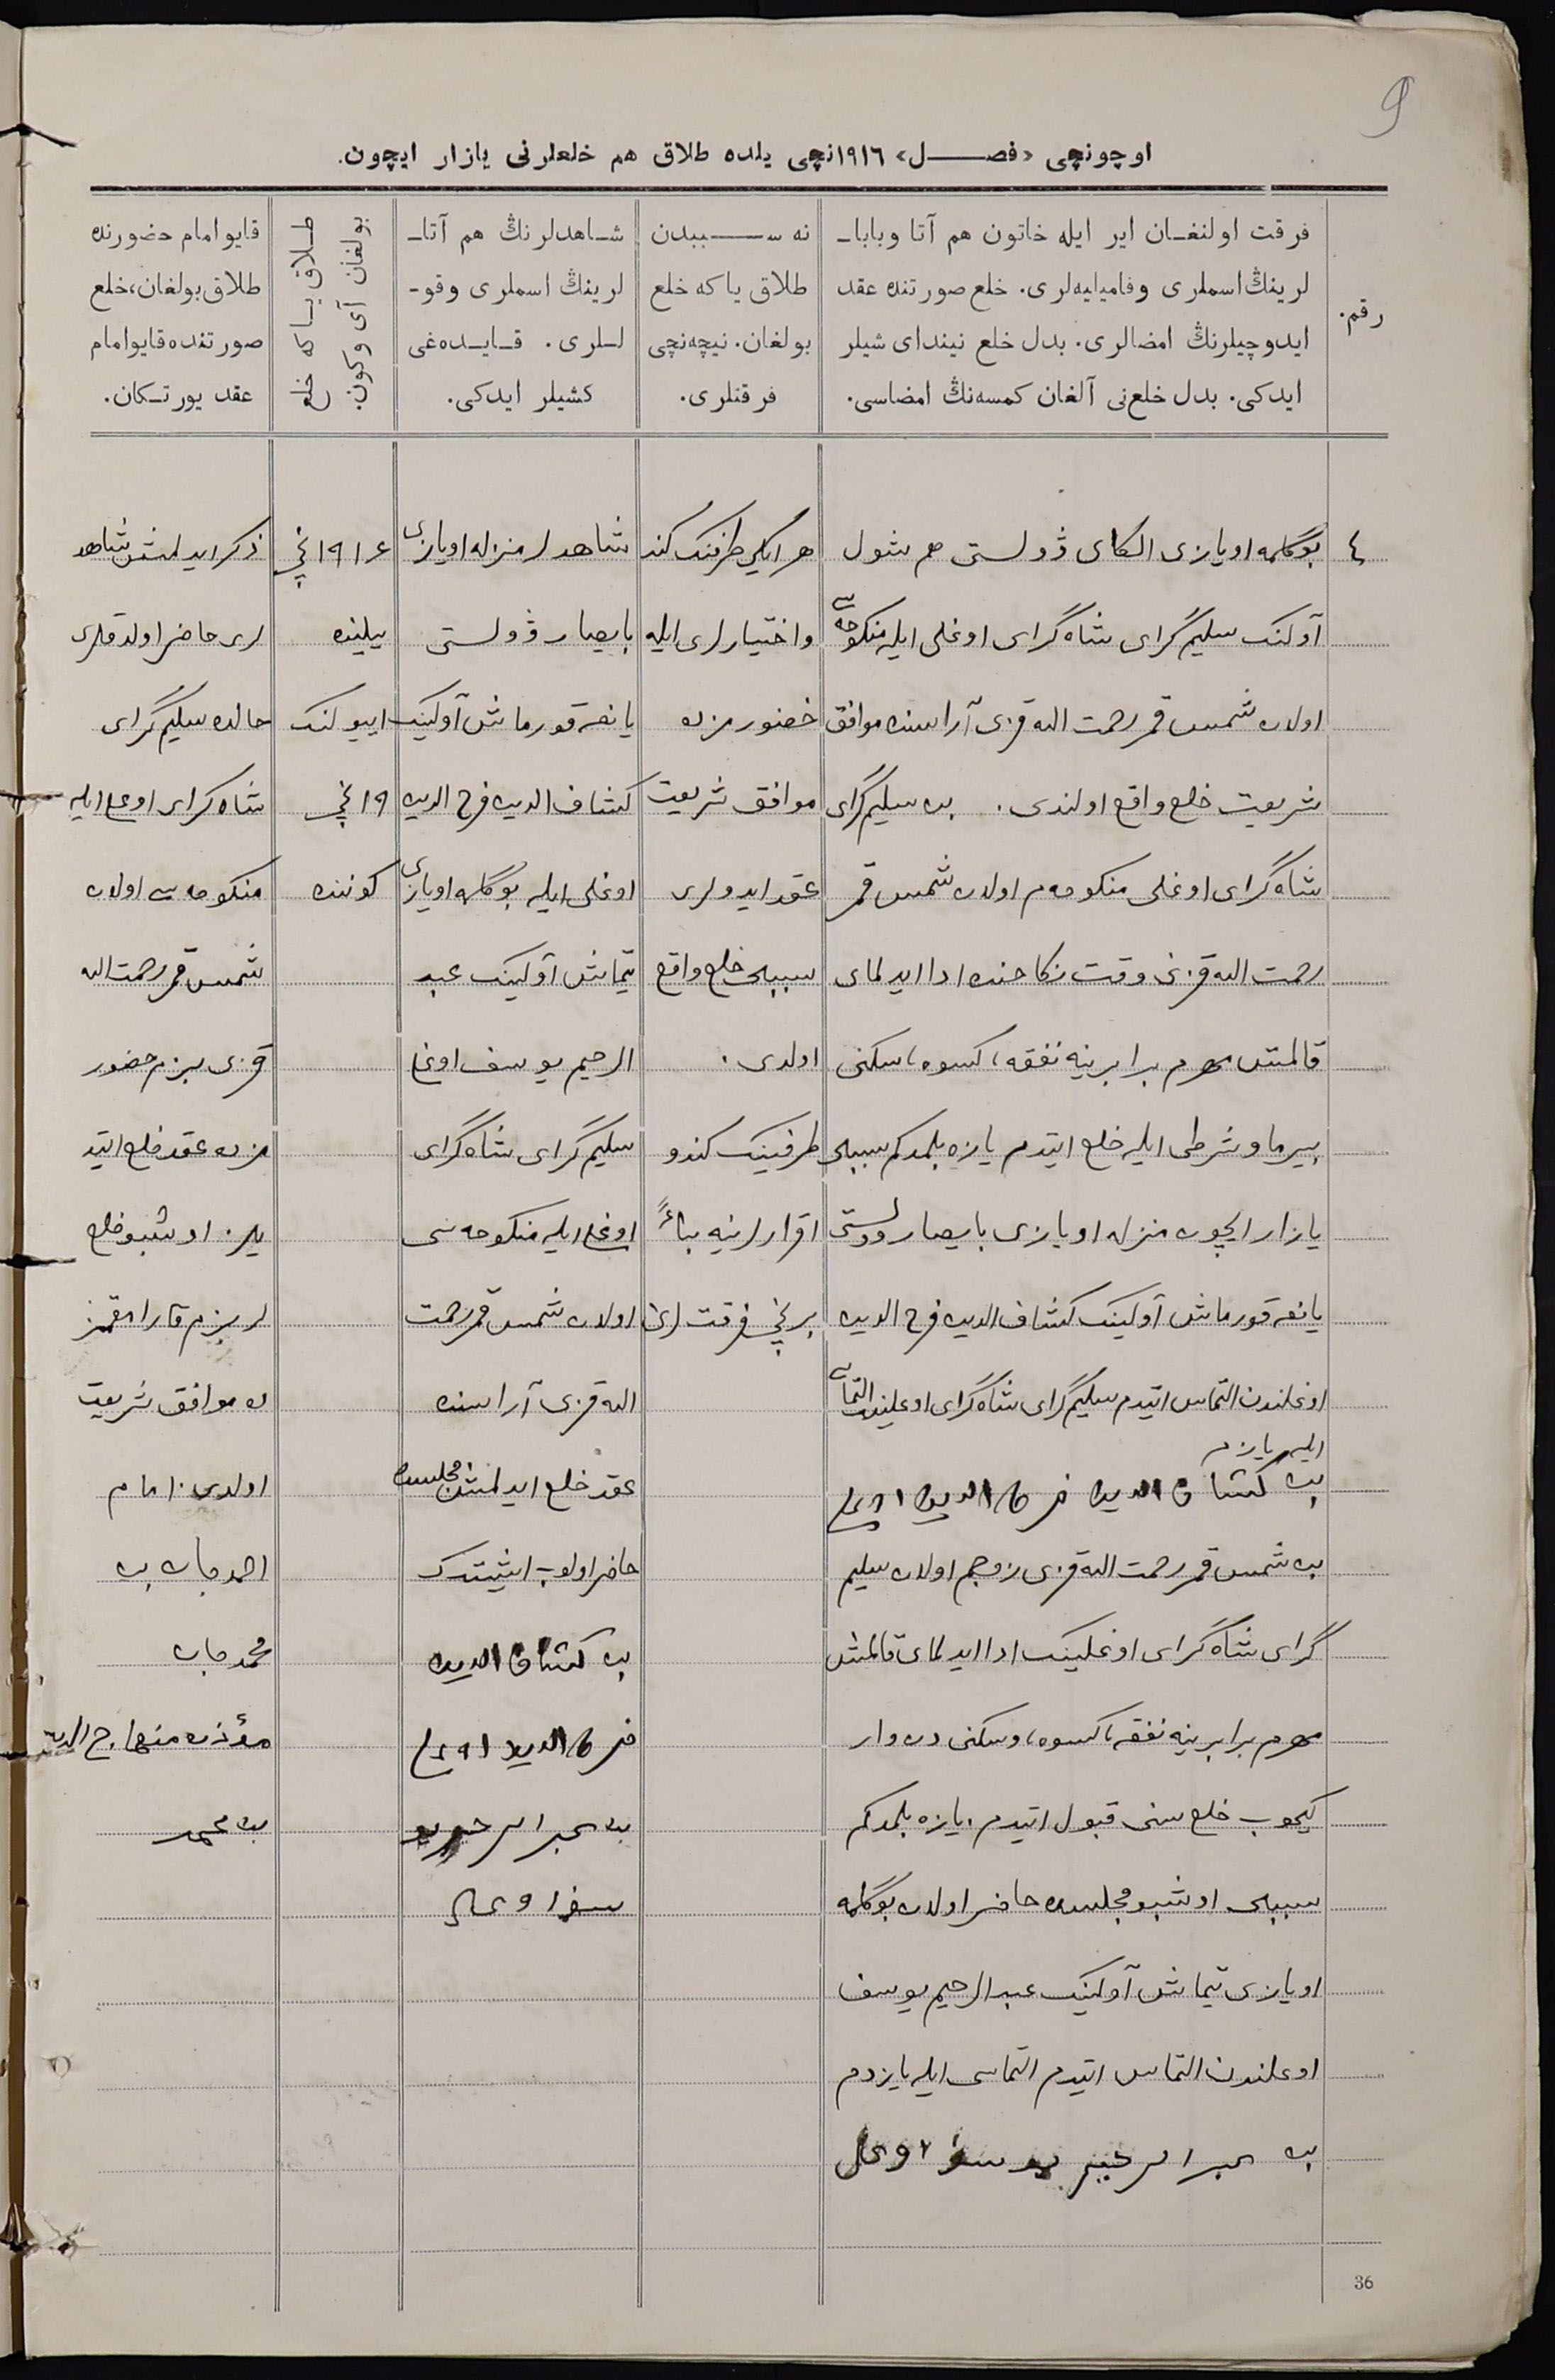 9
اوچونچی «فصل» ١٩١٦نچی یلده طلاق هم خلعلرنی یازار ایچون.
رقم.
فرقت اولنغان ایر ایله خاتون هم آتا وبابا-
لرینڭ اسملری وفامیلیه‌لری. خلع صورتنده عقد
ایدوچیلرنڭ امضالری. بدل خلع نیندای شیلر
ایدکی. بدل خلع‌نی آلغان کمسه‌نڭ امضاسی.
نه سببدن
طلاق یا که خلع
بولغان. نیچه‌نچی
فرقتلری.
شاهدلرنڭ هم آتا-
لرینڭ اسملری وقو-
لـلری. قایـده‌غی
کشیلر ایدکی.
طلاق یا که خلع
بولغان آی وکون.
قایو امام حضورنده
طلاق بولغان، خلع
صورتنده قایو امام
عقد یورتکان.
٤
بوگلمه اویازی الکای ڤولستی هم شول
آولنک سلیم گرای شاه گرای اوغلی ایله منکوحه سی
اولان شمس قمر رحمت الله قزی آراسنده موافق
شریعت خلع واقع اولندی. بن سلیم گرای
شاه گرای اوغلی منکوحه م اولان شمس قمر
رحمت الله قزنی وقت نکاحنده ادا ایدلمای
قالمش مهرم برابرینه نفقه، کسوه، سکنی
بیرماو شرطی ایله خلع ایتدم یازه بلمدکم سببلی
یازار ایچون منزله اویازی بایصار وولستی
یانغه قورماش آولینک کشاف الدین فرح الدین
اوغلندن التماس ایتدم سلیم گرای شاه گرای اوغلینک التماسی
ایله یازدم
بن کشاف الدین فرح الدین اوغلی
بن شمس قمر رحمت الله قزی زوجم اولان سلیم
گرای شاه گرای اوغلینک ادا ایدلمای قالمش
مهرم برابرینه نفقه، کسوه، وسکنی دن واز
کیچوب خلع سنی قبول ایتدم. یازه بلمدکم
سببلی اوشبو مجلسده حاضر اولان بوگلمه
اویازی تیماش آولینک عبد الرحیم یوسف
اوغلندن التماس ایتدم التماسی ایله یازدم
بن عبد الرحیم یوسف اوغلی
هر ایکی طرفنک کند
واختیارلری ایله
حضورمزده
موافق شریعت
عقد ایدولری
سببلی خلع واقع
اولدی.
طرفینک کندو
اقرارلرینه بناءً
برنچی فرقت لری
شاهدلر منزله اویازی
بایصار ڤولستی
یانغه قورماش آولینک
کشاف الدین فرح الدین
اوغلی ایله بوگلمه اویازی
تیماش آولینک عبد
الرحیم یوسف اوغلی
سلیم گرای شاه گرای
اوغلی ایله منکوحه سی
اولان شمس قمر رحمت
الله قزی آراسنده
عقد خلع ایدلمش مجلسده
حاضر اولوب ایشیتدک
بن کشاف الدین
فرح الدین اوغلی
بن عبد الرحیم یو
سف اوغلی
١٩١٦ نچی
ییلینده
اییولنک
١٩ نچی
کوننده
ذکر ایدلمش شاهد
لری حاضر اولدقلری
حالده سلیم گرای
شاه گرای اوغلی ایله
منکوحه سی اولان
شمس قمر رحمت الله
قزی بزم حضور
مزده عقد خلع ایتد
یلر. اوشبو خلع
لر بزم قارامقمز
ده موافق شریعت
اولدی. امام
احمد جان بن
محمد جان
مؤذن منهاج الدین
بن محمد
36